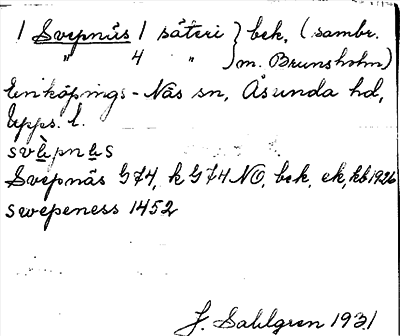 1 Svepnäs 1 säteri } bek. (sambr.
" 4 " } m. Brunsholm)
Enköpings-Näs sn, Åsunda hd,
Upps. l.
svèpnäs
Svepnäs G74, k G74 NO, bek, ek, kb 1926
swepeness 1452
J. Sahlgren 1931